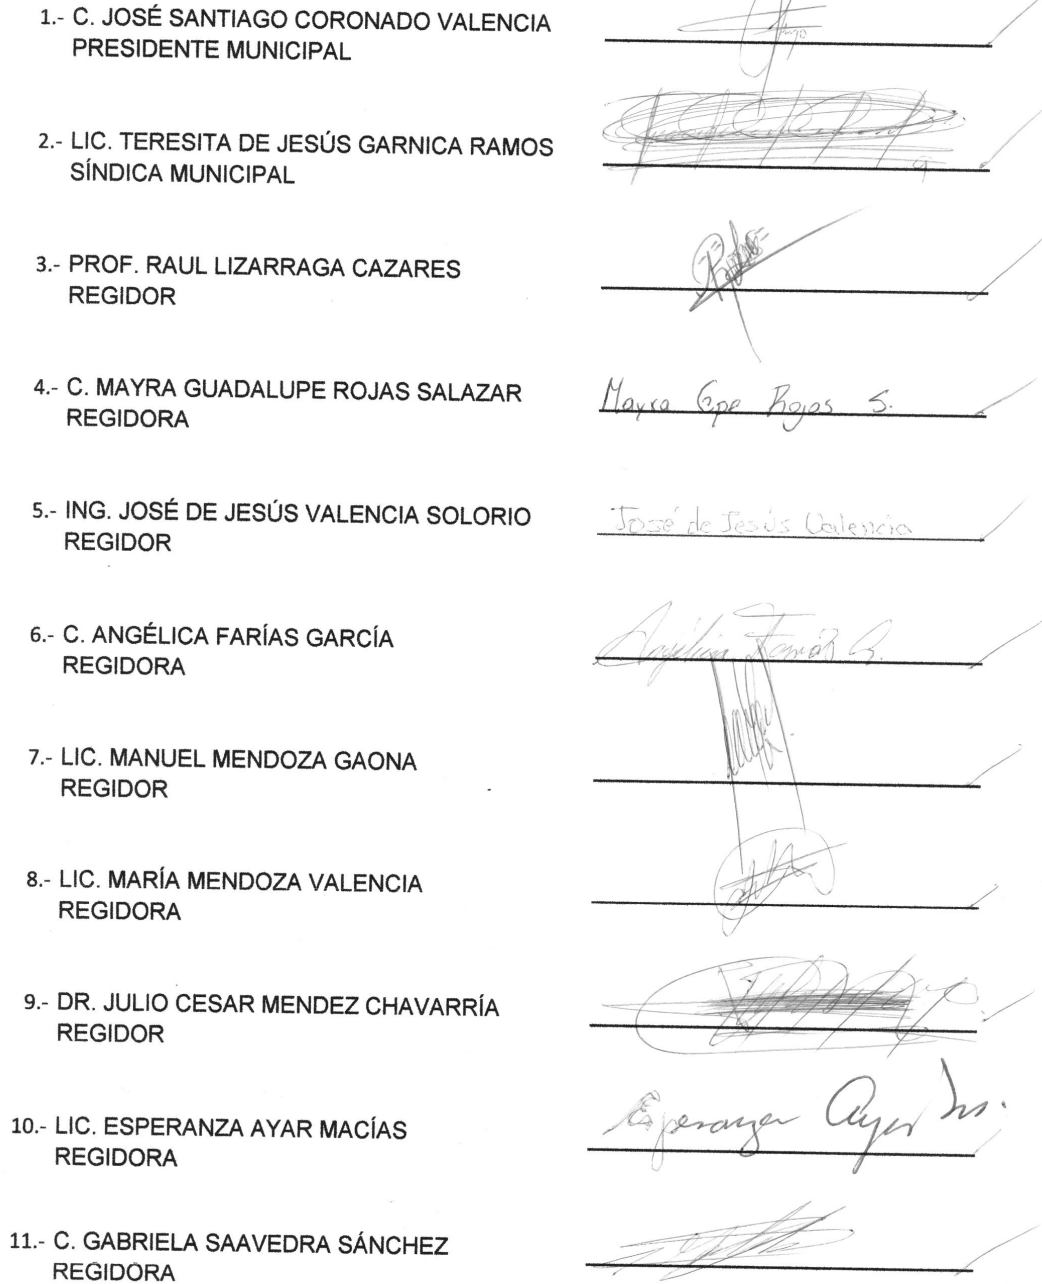 1.- C. JOSÉ SANTIAGO CORONADO VALENCIA
PRESIDENTE MUNICIPAL
2.- LIC. TERESITA DE JESÚS GARNICA RAMOS
SÍNDICA MUNICIPAL
3.- PROF. RAUL LIZARRAGA CAZARES
REGIDOR
4.- C. MAYRA GUADALUPE ROJAS SALAZAR
REGIDORA
Mayra Gpe Rojas S.
5.- ING. JOSÉ DE JESÚS VALENCIA SOLORIO
REGIDOR
José de Jesús Valencia
6.- C. ANGÉLICA FARÍAS GARCÍA
REGIDORA
Angélica Farías G.
7.- LIC. MANUEL MENDOZA GAONA
REGIDOR
8.- LIC. MARÍA MENDOZA VALENCIA
REGIDORA
9.- DR. JULIO CESAR MENDEZ CHAVARRÍA
REGIDOR
10.- LIC. ESPERANZA AYAR MACÍAS
REGIDORA
Esperanza Ayar Ms.
11.- C. GABRIELA SAAVEDRA SÁNCHEZ
REGIDORA